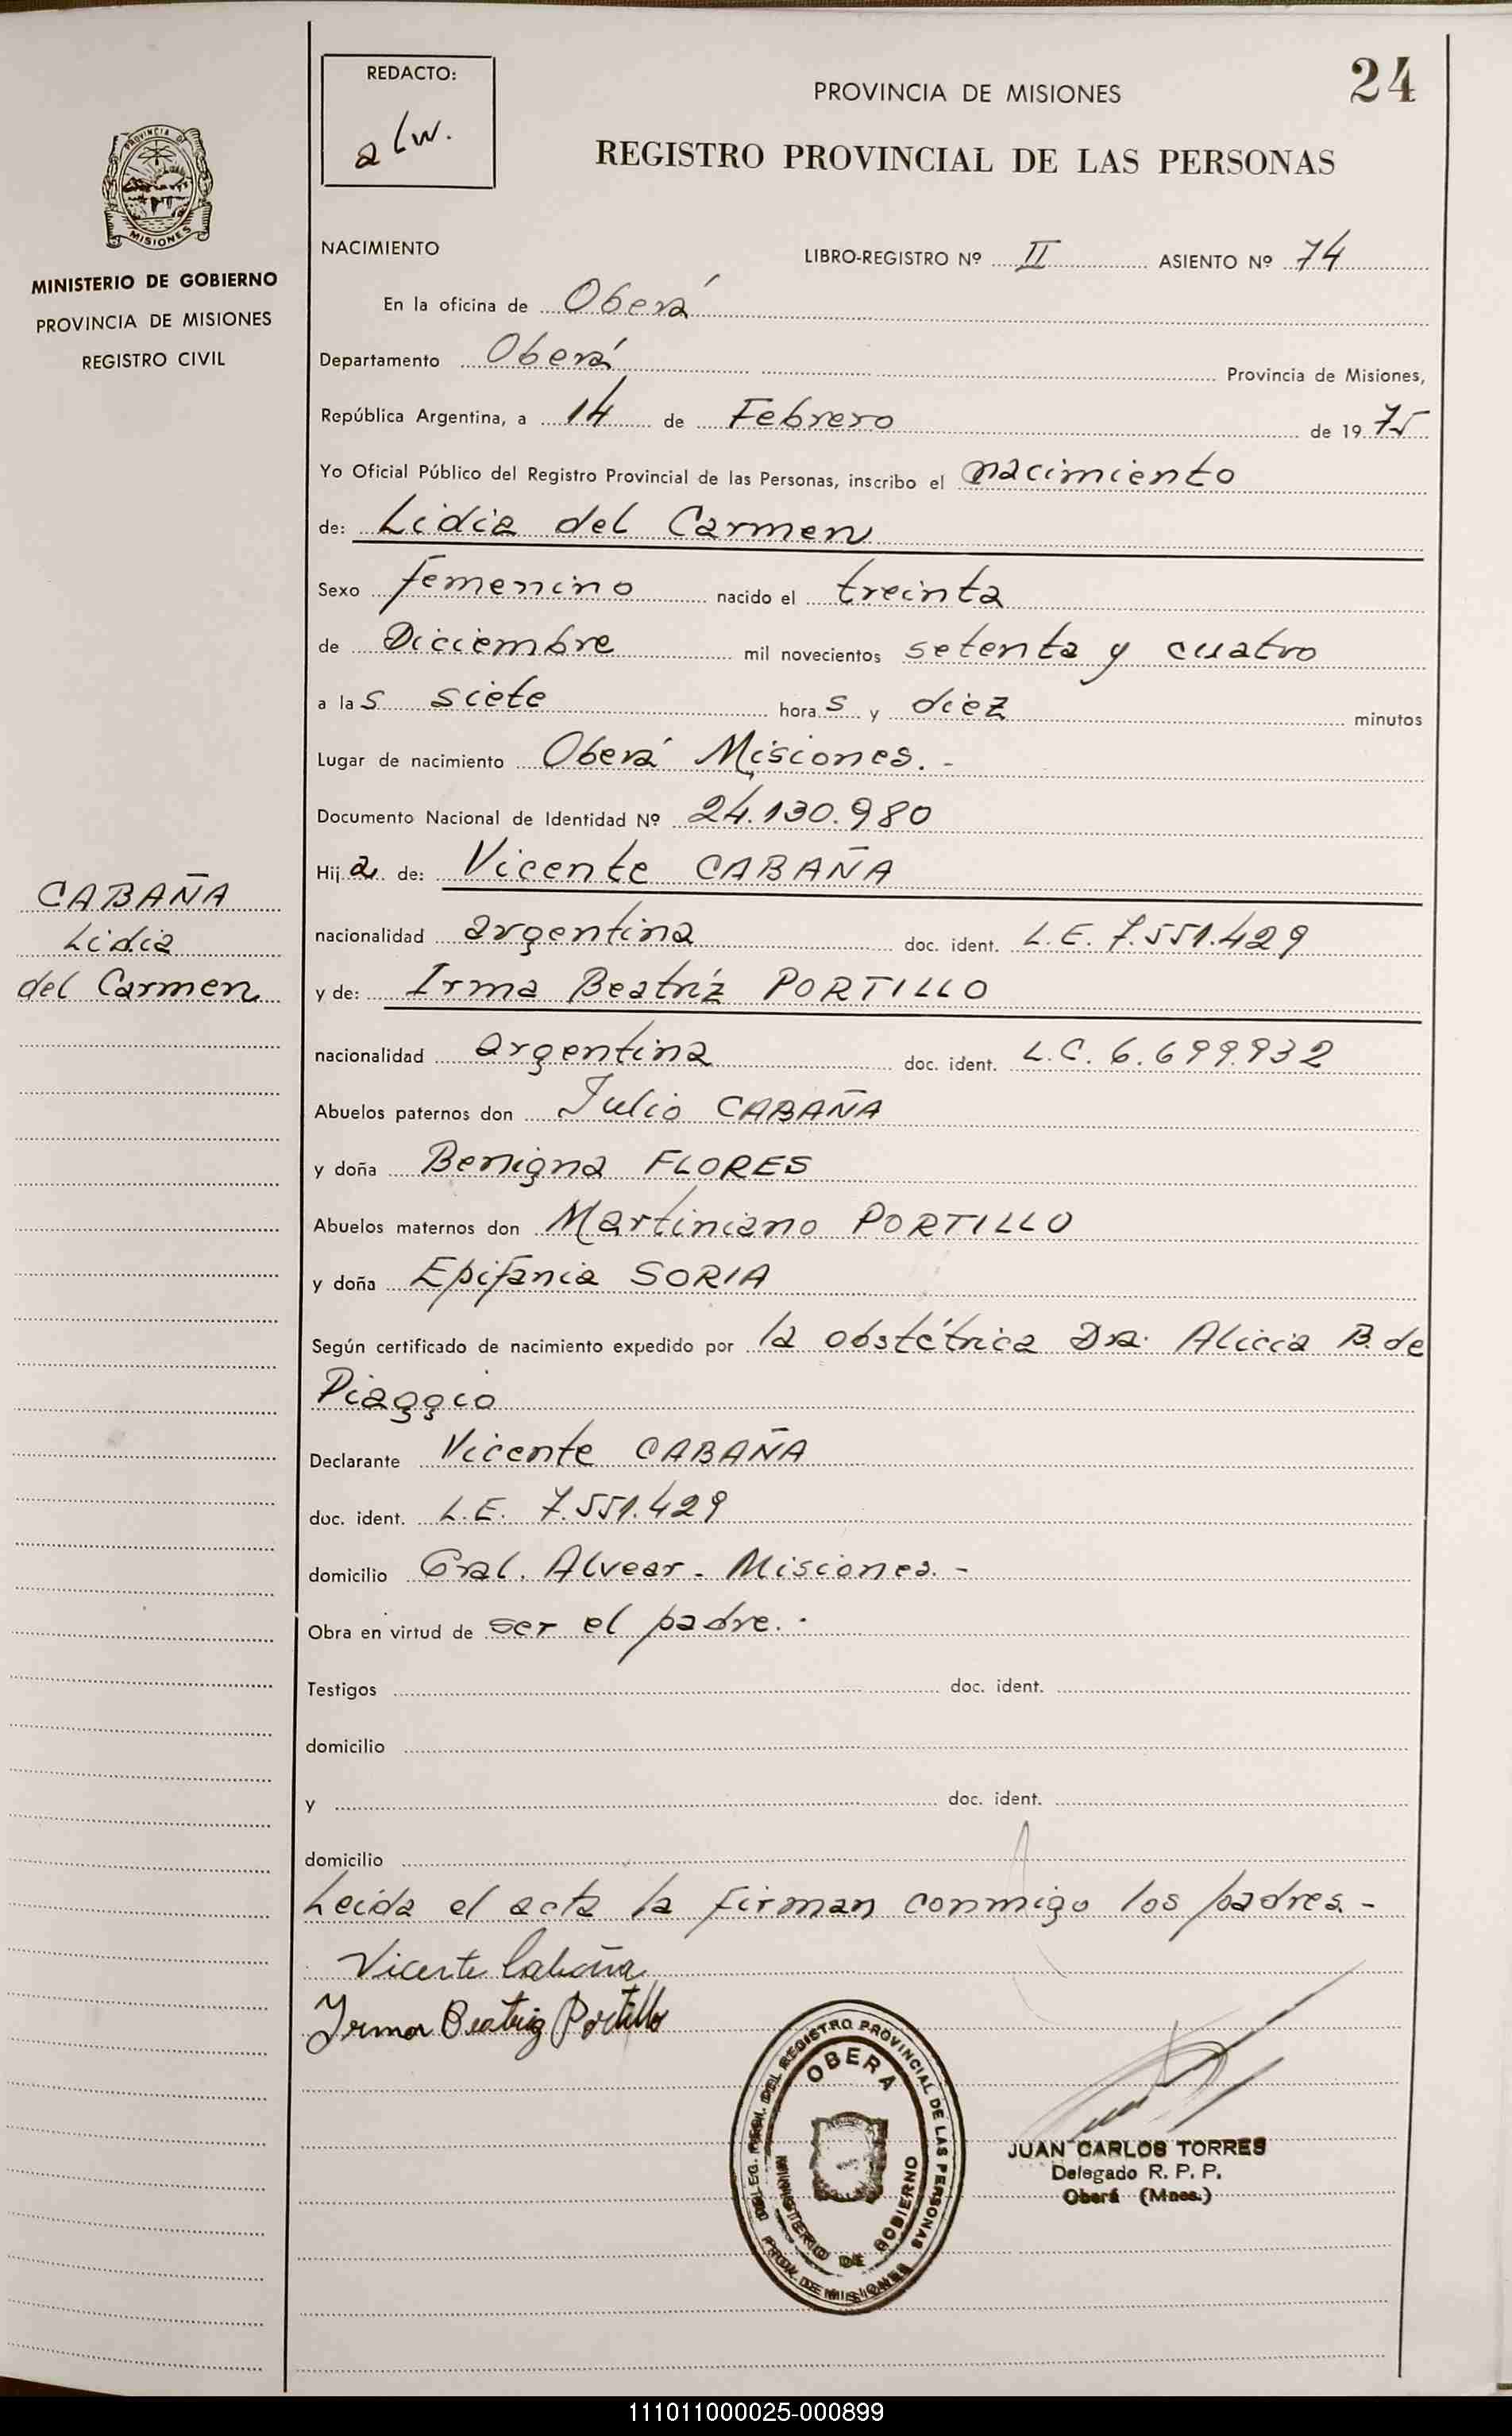 REDACTO:
alw.
PROVINCIA DE MISIONES
24
REGISTRO PROVINCIAL DE LAS PERSONAS
PROVINCIA DE
MISIONES
MINISTERIO DE GOBIERNO
PROVINCIA DE MISIONES
REGISTRO CIVIL
NACIMIENTO LIBRO-REGISTRO Nº II ASIENTO Nº 74
En la oficina de Oberá
Departamento Oberá Provincia de Misiones,
República Argentina, a 14 de Febrero de 1975
Yo Oficial Público del Registro Provincial de las Personas, inscribo el nacimiento
de: Lidia del Carmen
Sexo femenino nacido el treinta
de Diciembre mil novecientos setenta y cuatro
a las siete horas y diez minutos
Lugar de nacimiento Oberá Misiones.-
Documento Nacional de Identidad Nº 24.130.980
Hija de: Vicente CABAÑA
CABAÑA
Lidia
del Carmen
nacionalidad argentina doc. ident. L.E. 7.551.429
y de: Irma Beatríz PORTILLO
nacionalidad argentina doc. ident. L.C. 6.699.932
Abuelos paternos don Julio CABAÑA
y doña Benigna FLORES
Abuelos maternos don Martiniano PORTILLO
y doña Epifania SORIA
Según certificado de nacimiento expedido por la obstétrica Dra. Alicia B. de
Piaggio
Declarante Vicente CABAÑA
doc. ident. L.E. 7.551.429
domicilio Gral. Alvear - Misiones.-
Obra en virtud de ser el padre.-
Testigos doc. ident.
domicilio
y doc. ident.
domicilio
Leida el acta la firman conmigo los padres.-
Vicente Cabaña
Irma Beatriz Portillo
DELEG. REGN. DEL REGISTRO PROVINCIAL DE LAS PERSONAS
OBERA
MINISTERIO DE GOBIERNO
PROV. DE MISIONES
JUAN CARLOS TORRES
Delegado R. P. P.
Oberá (Mnes.)
111011000025-000899